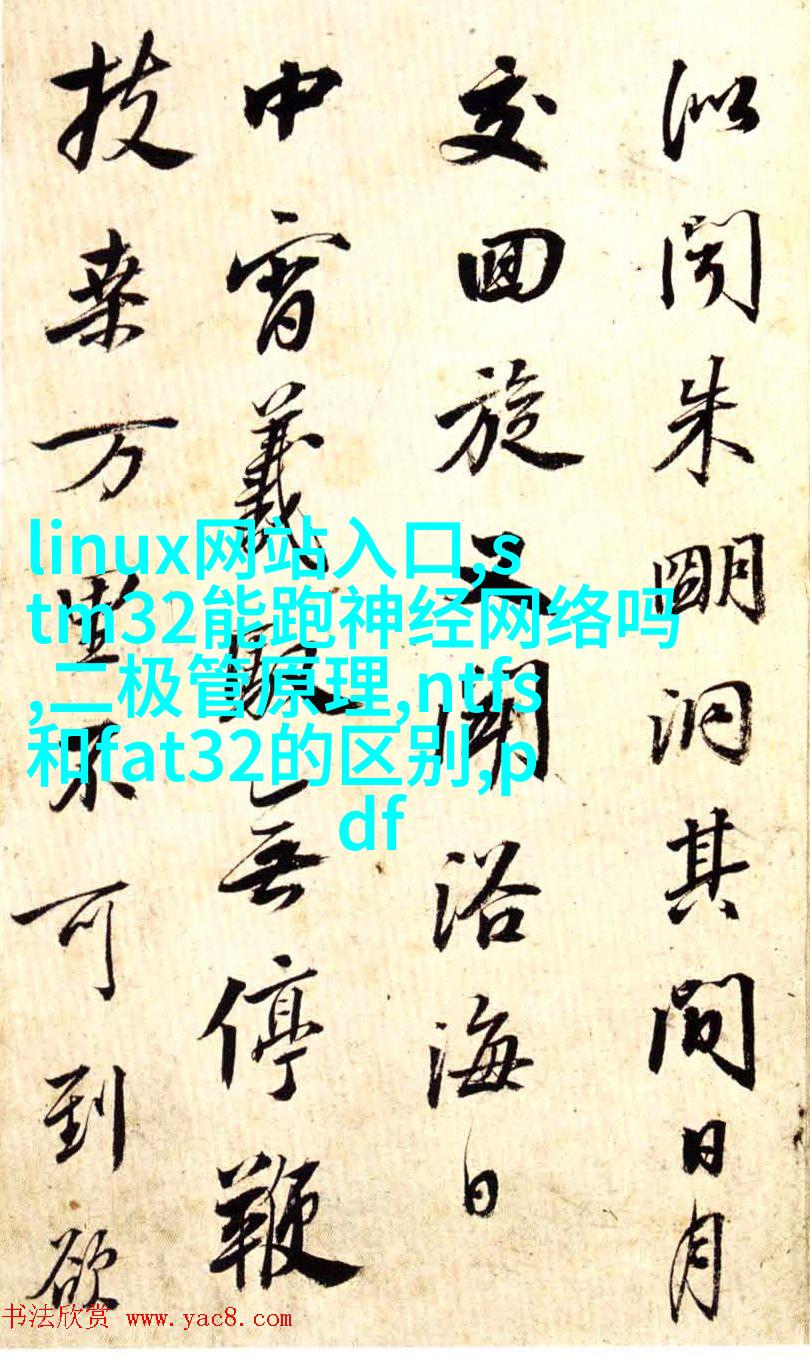 似聞朱明洞其間日月
交回旋又聞浴海日
中宵羲馭無停鞭
扶桒万里不可到欲
linux网站入口,s
tm32能跑神经网络吗
,二极管原理,ntfs
和fat32的区别,p
df
书法欣赏 www.yac8.com